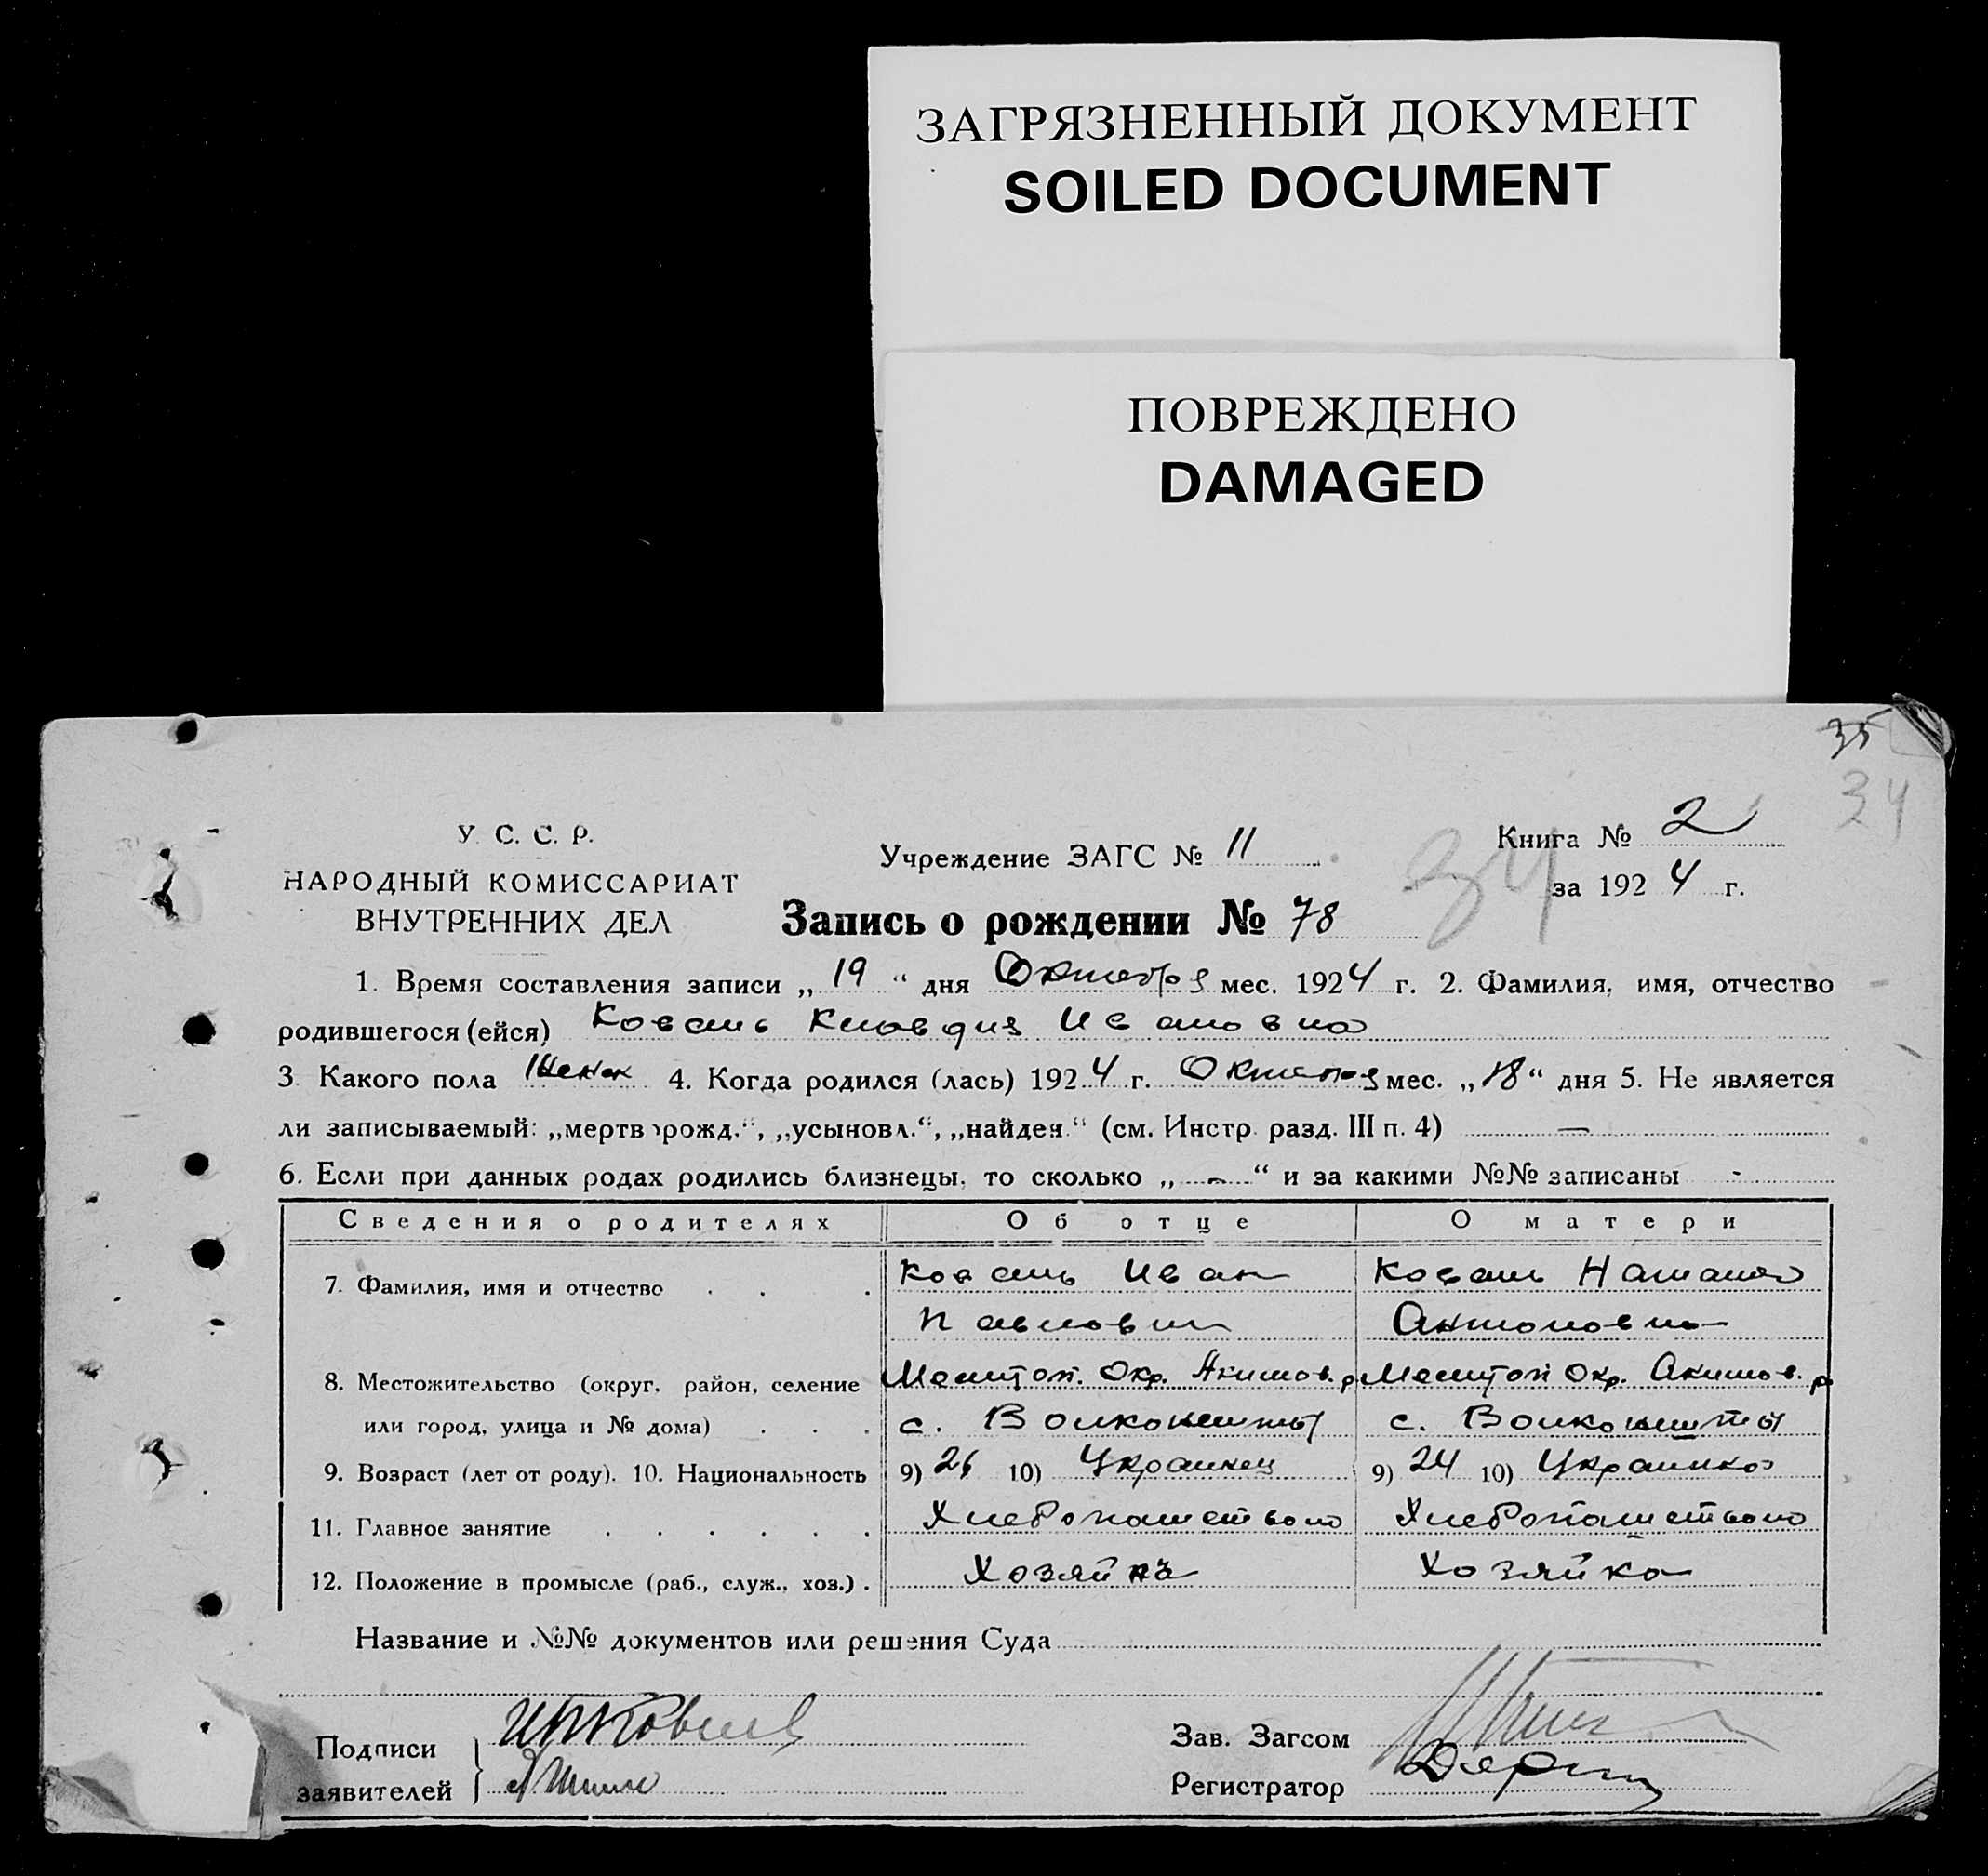 ЗАГРЯЗНЕННЫЙ ДОКУМЕНТ
SOILED DOCUMENT
ПОВРЕЖДЕНО
DAMAGED
35
34
У. С. С. Р.
НАРОДНЫЙ КОМИССАРИАТ
ВНУТРЕННИХ ДЕЛ
Учреждение ЗАГС № 11
Книга № 2
за 1924 г.
34
Запись о рождении № 78
1. Время составления записи „19“ дня Октября мес. 1924 г. 2. Фамилия, имя, отчество
родившегося (ейся) Коваль Клавдия Ивановна
3. Какого пола Женск 4. Когда родился (лась) 1924 г. Октября мес. „18“ дня 5. Не является
ли записываемый: „мертворожд.“, „усыновл.“, „найден.“ (см. Инстр. разд. III п. 4) —
6. Если при данных родах родились близнецы, то сколько „ - “ и за какими №№ записаны -
Сведения о родителях Об отце О матери
7. Фамилия, имя и отчество Коваль Иван Коваль Наталья
Павлович Антоновна
8. Местожительство (округ, район, селение Мелитоп. Окр. Акимов. р Мелитоп Окр. Акимов. р
или город, улица и № дома) с. с.
9. Возраст (лет от роду). 10. Национальность 9) 26 10) Украинец 9) 24 10) Украинка
11. Главное занятие Хлебопашество Хлебопашество
12. Положение в промысле (раб., служ., хоз.) Хозяин Хозяйка
Название и №№ документов или решения Суда
Подписи
заявителей
Зав. Загсом
Регистратор